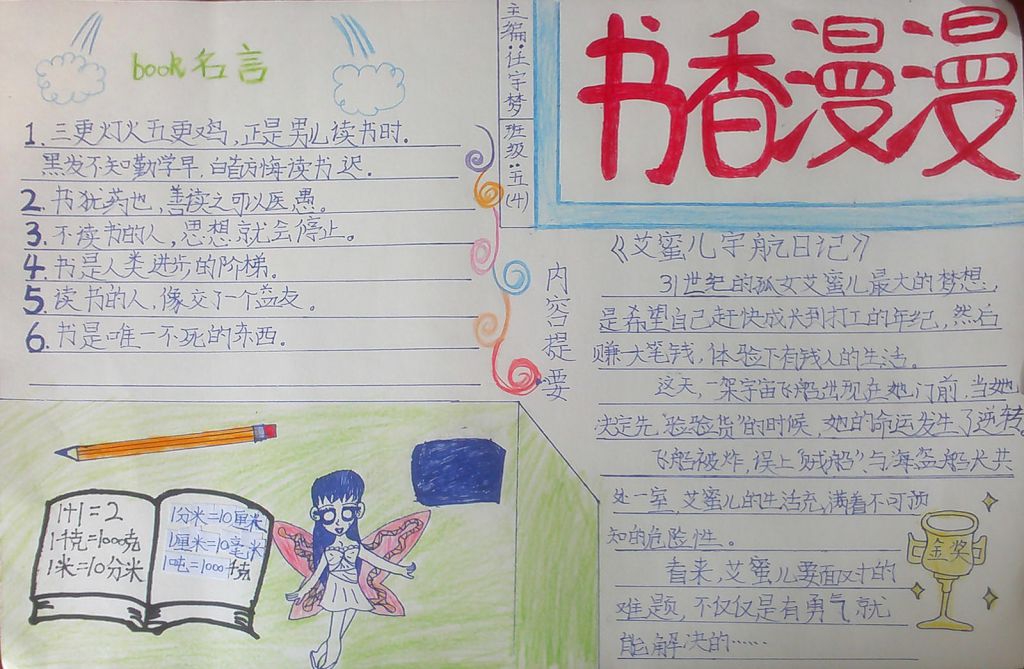 book名言
1. 三更灯火五更鸡,正是男儿读书时.
黑发不知勤学早,白首方悔读书迟.
2. 书犹药也,善读之可以医愚。
3. 不读书的人,思想就会停止。
4. 书是人类进步的阶梯。
5 读书的人,像交了一个益友。
6. 书是唯一不死的东西.
主编:任宇梦
班级:五(4)
书香漫漫
内容提要
《艾蜜儿宇航日记》
31世纪的孤女艾蜜儿最大的梦想,
是希望自己赶快成长到打工的年纪,然后
赚大笔钱,体验下有钱人的生活。
这天,一架宇宙飞船出现在她门前,当她
决定先"验验货"的时候,她的命运发生了逆转
飞船被炸,误上"贼船",与海盗船长共
处一室,艾蜜儿的生活充满着不可预
知的危险性。
看来,艾蜜儿要面对的
难题,不仅仅是有勇气就
能解决的……
金奖
1+1=2
1千克=1000克
1米=10分米
1分米=10厘米
1厘米=10毫米
1吨=1000千克